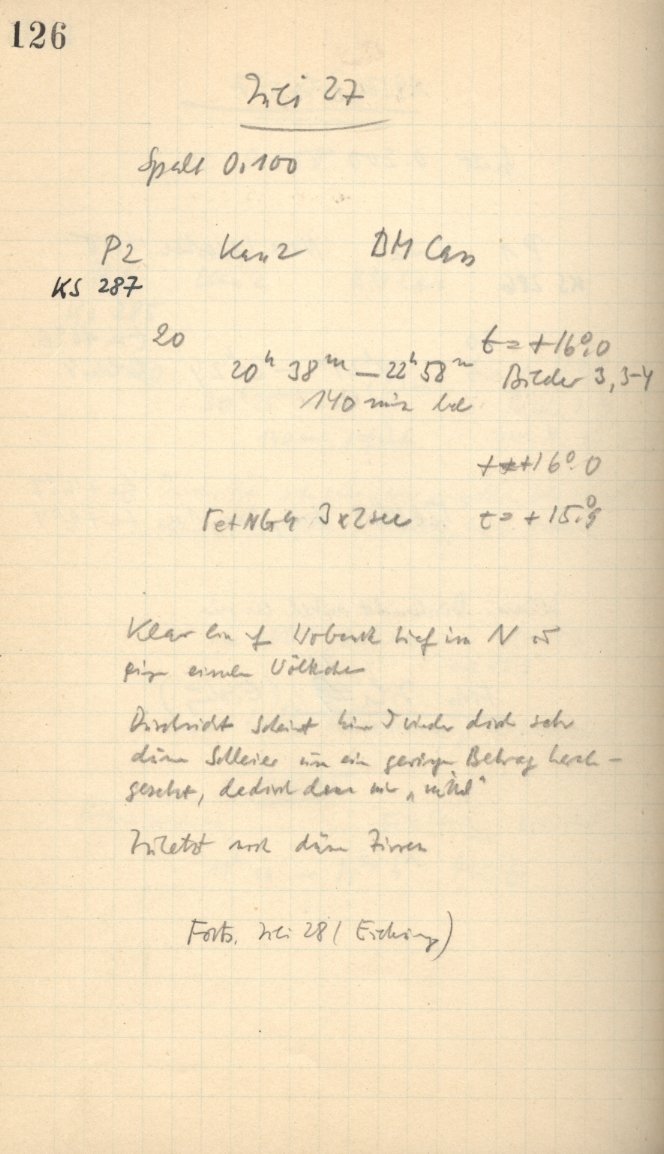 126
Juli 27
Spalt 0.100
P2 Kan 2 BM Cass
KS 287
20 t = +16°.0
20h 38m — 22h 58m Bilder 3, 3-4
140 min bel
t = +16°.0
3 x 2 sec t = + 15°.9
Klar tief im N
Völkchen
Durchsicht scheint hin wieder durch sehr
dünne Schleier um ein geringen Betrag herab-
gesetzt, dadurch dann nur „mittel"
Zuletzt noch dünne Zirren
Forts. Juli 28 (Eichung)